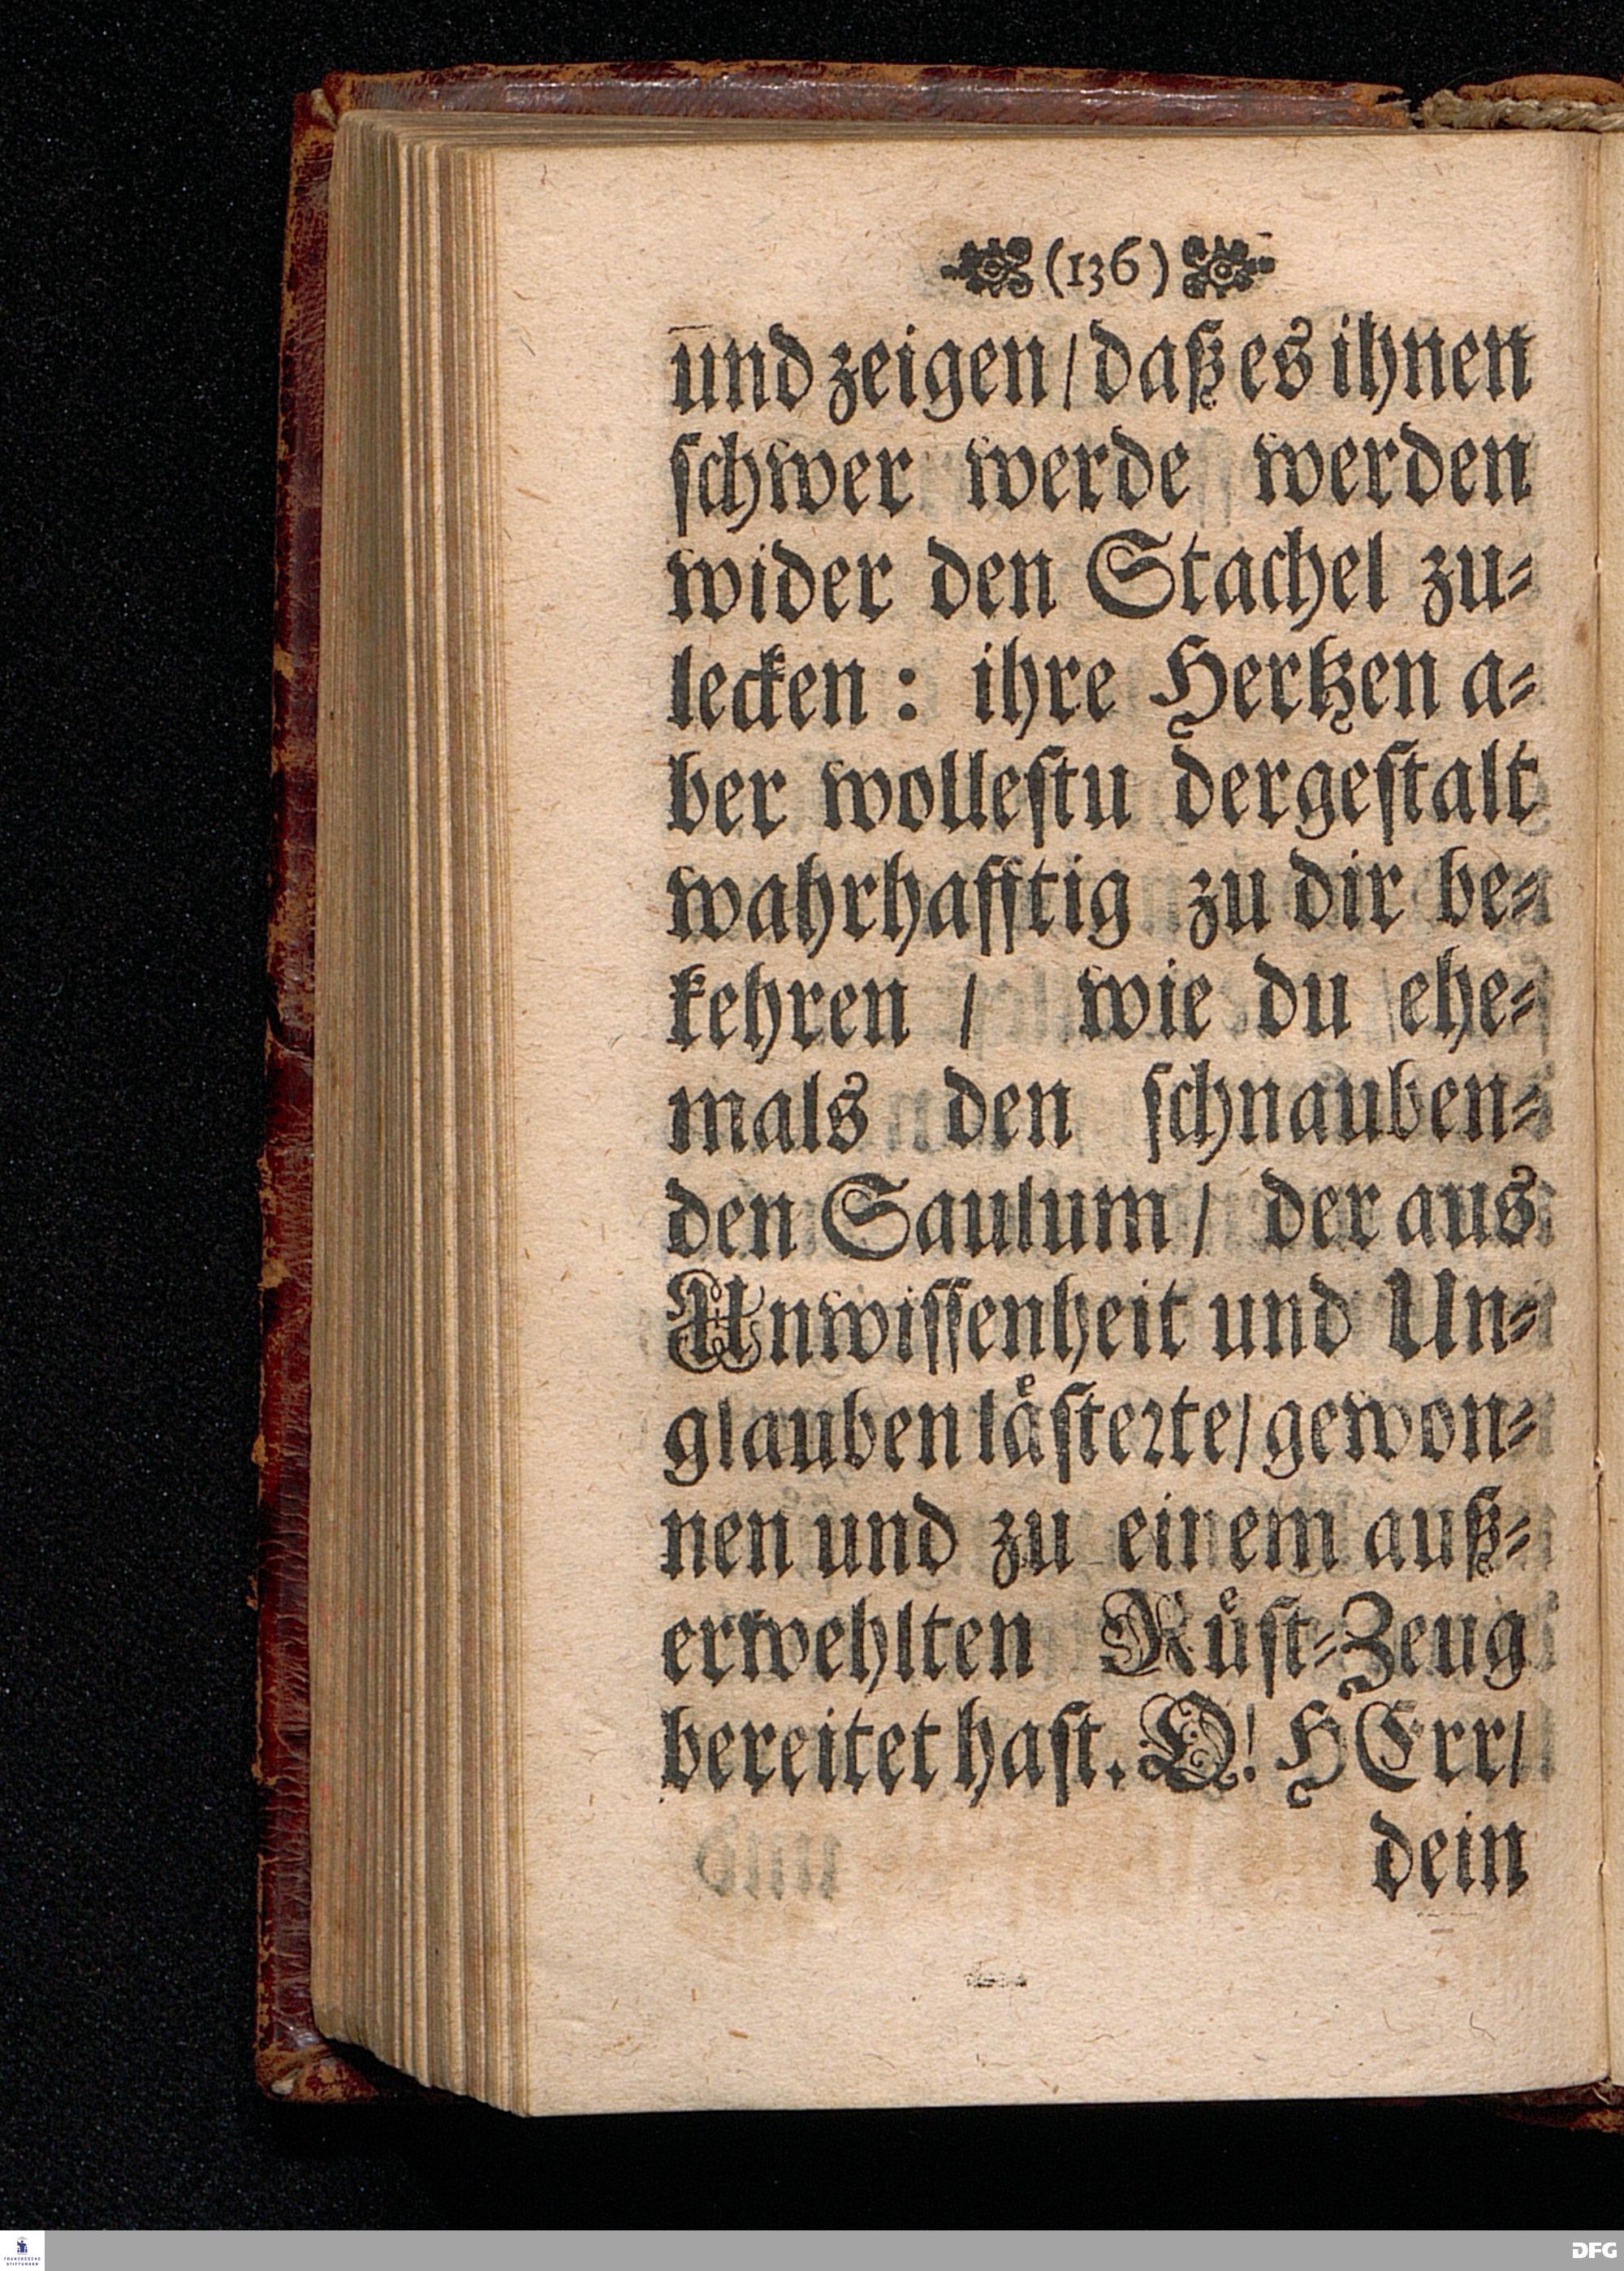 (136)
und zeigen/ daß es ihnen
schwer werde werden
wider den Stachel zu-
lecken: ihre Hertzen a-
ber wollestu dergestalt
wahrhafftig zu dir be-
kehren / wie du ehe-
mals den schnauben-
den Saulum/ der aus
Unwissenheit und Un-
glauben laͤsterte/ gewon-
nen und zu einem auß-
erwehlten Ruͤst-Zeug
bereitet hast. O! HErr/
dein
FRANCKESCHE
STIFTUNGEN
DFG